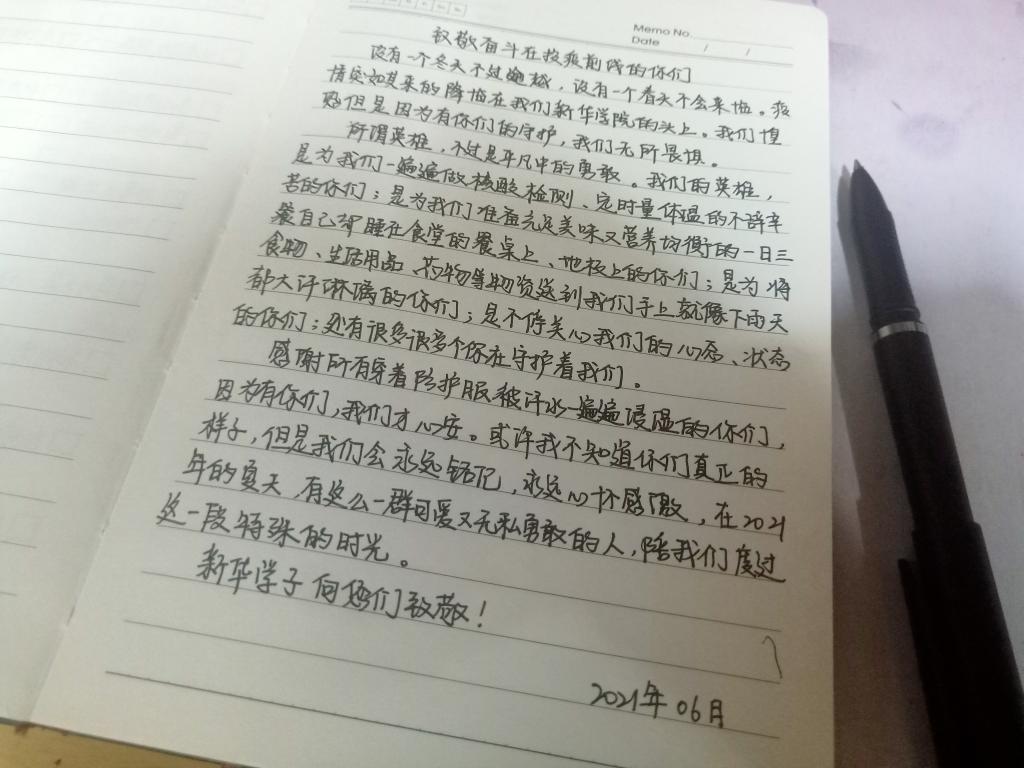 Memo No.
Date / /
致敬奋斗在抗疫前线的你们
没有一个冬天不可逾越，没有一个春天不会来临。疫
情突如其来的降临在我们新华学院的头上。我们惶
恐但是因为有你们的守护，我们无所畏惧。
所谓英雄，不过是平凡中的勇敢。我们的英雄，
是为我们一遍遍做核酸检测、定时量体温的不辞辛
苦的你们；是为我们准备充足美味又营养均衡的一日三
餐自己却睡在食堂的餐桌上、地板上的你们；是为将
食物、生活用品、药物等物资送到我们手上就像下雨天
都大汗淋漓的你们；是不停关心我们的心态、状态
的你们；还有很多很多个你在守护着我们。
感谢所有穿着防护服被汗水一遍遍浸湿的你们，
因为有你们，我们才心安。或许我不知道你们真正的
样子，但是我们会永远铭记，永远心怀感激，在2021
年的夏天，有这么一群可爱又无私勇敢的人，陪我们度过
这一段特殊的时光。
新华学子向您们致敬！
2021年06月